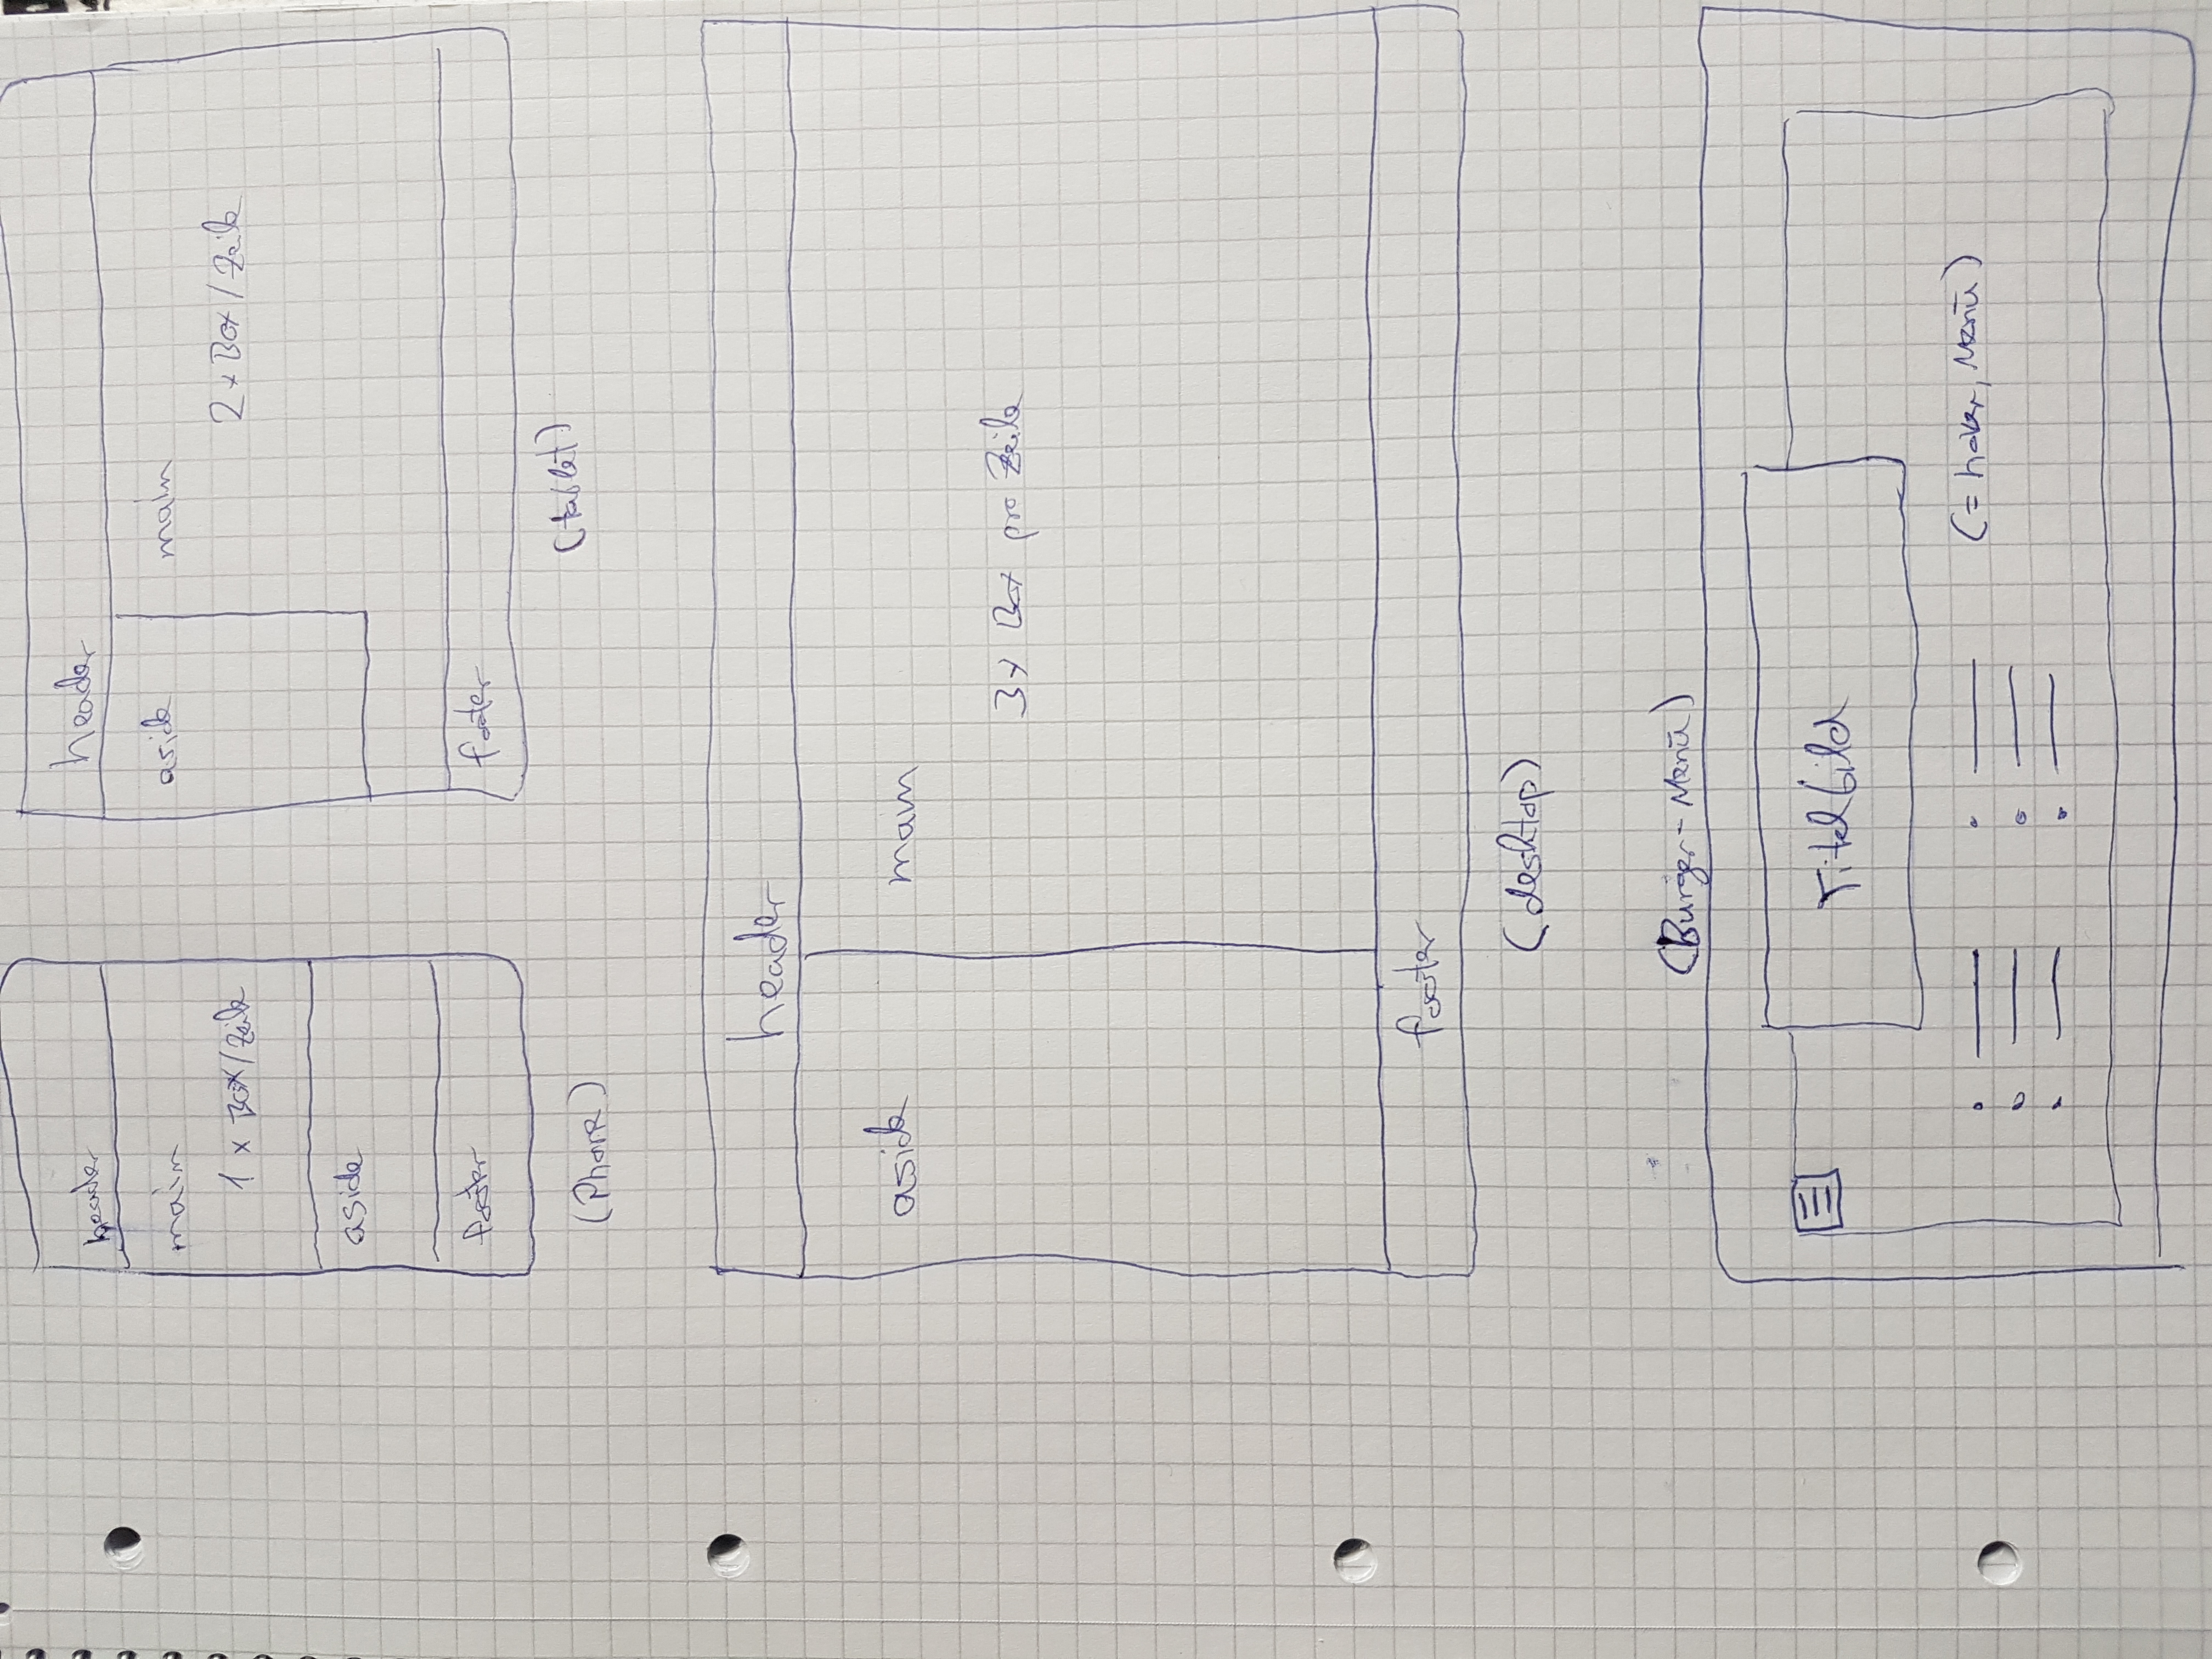 header
main
1 x Box/Zeile
aside
footer
(Phone)
header
aside
main
2 x Box/Zeile
footer
(tablet)
header
aside
main
3x Box pro Zeile
footer
(desktop)
(Burger-Menü)
Titelbild
(= hover, Menü)